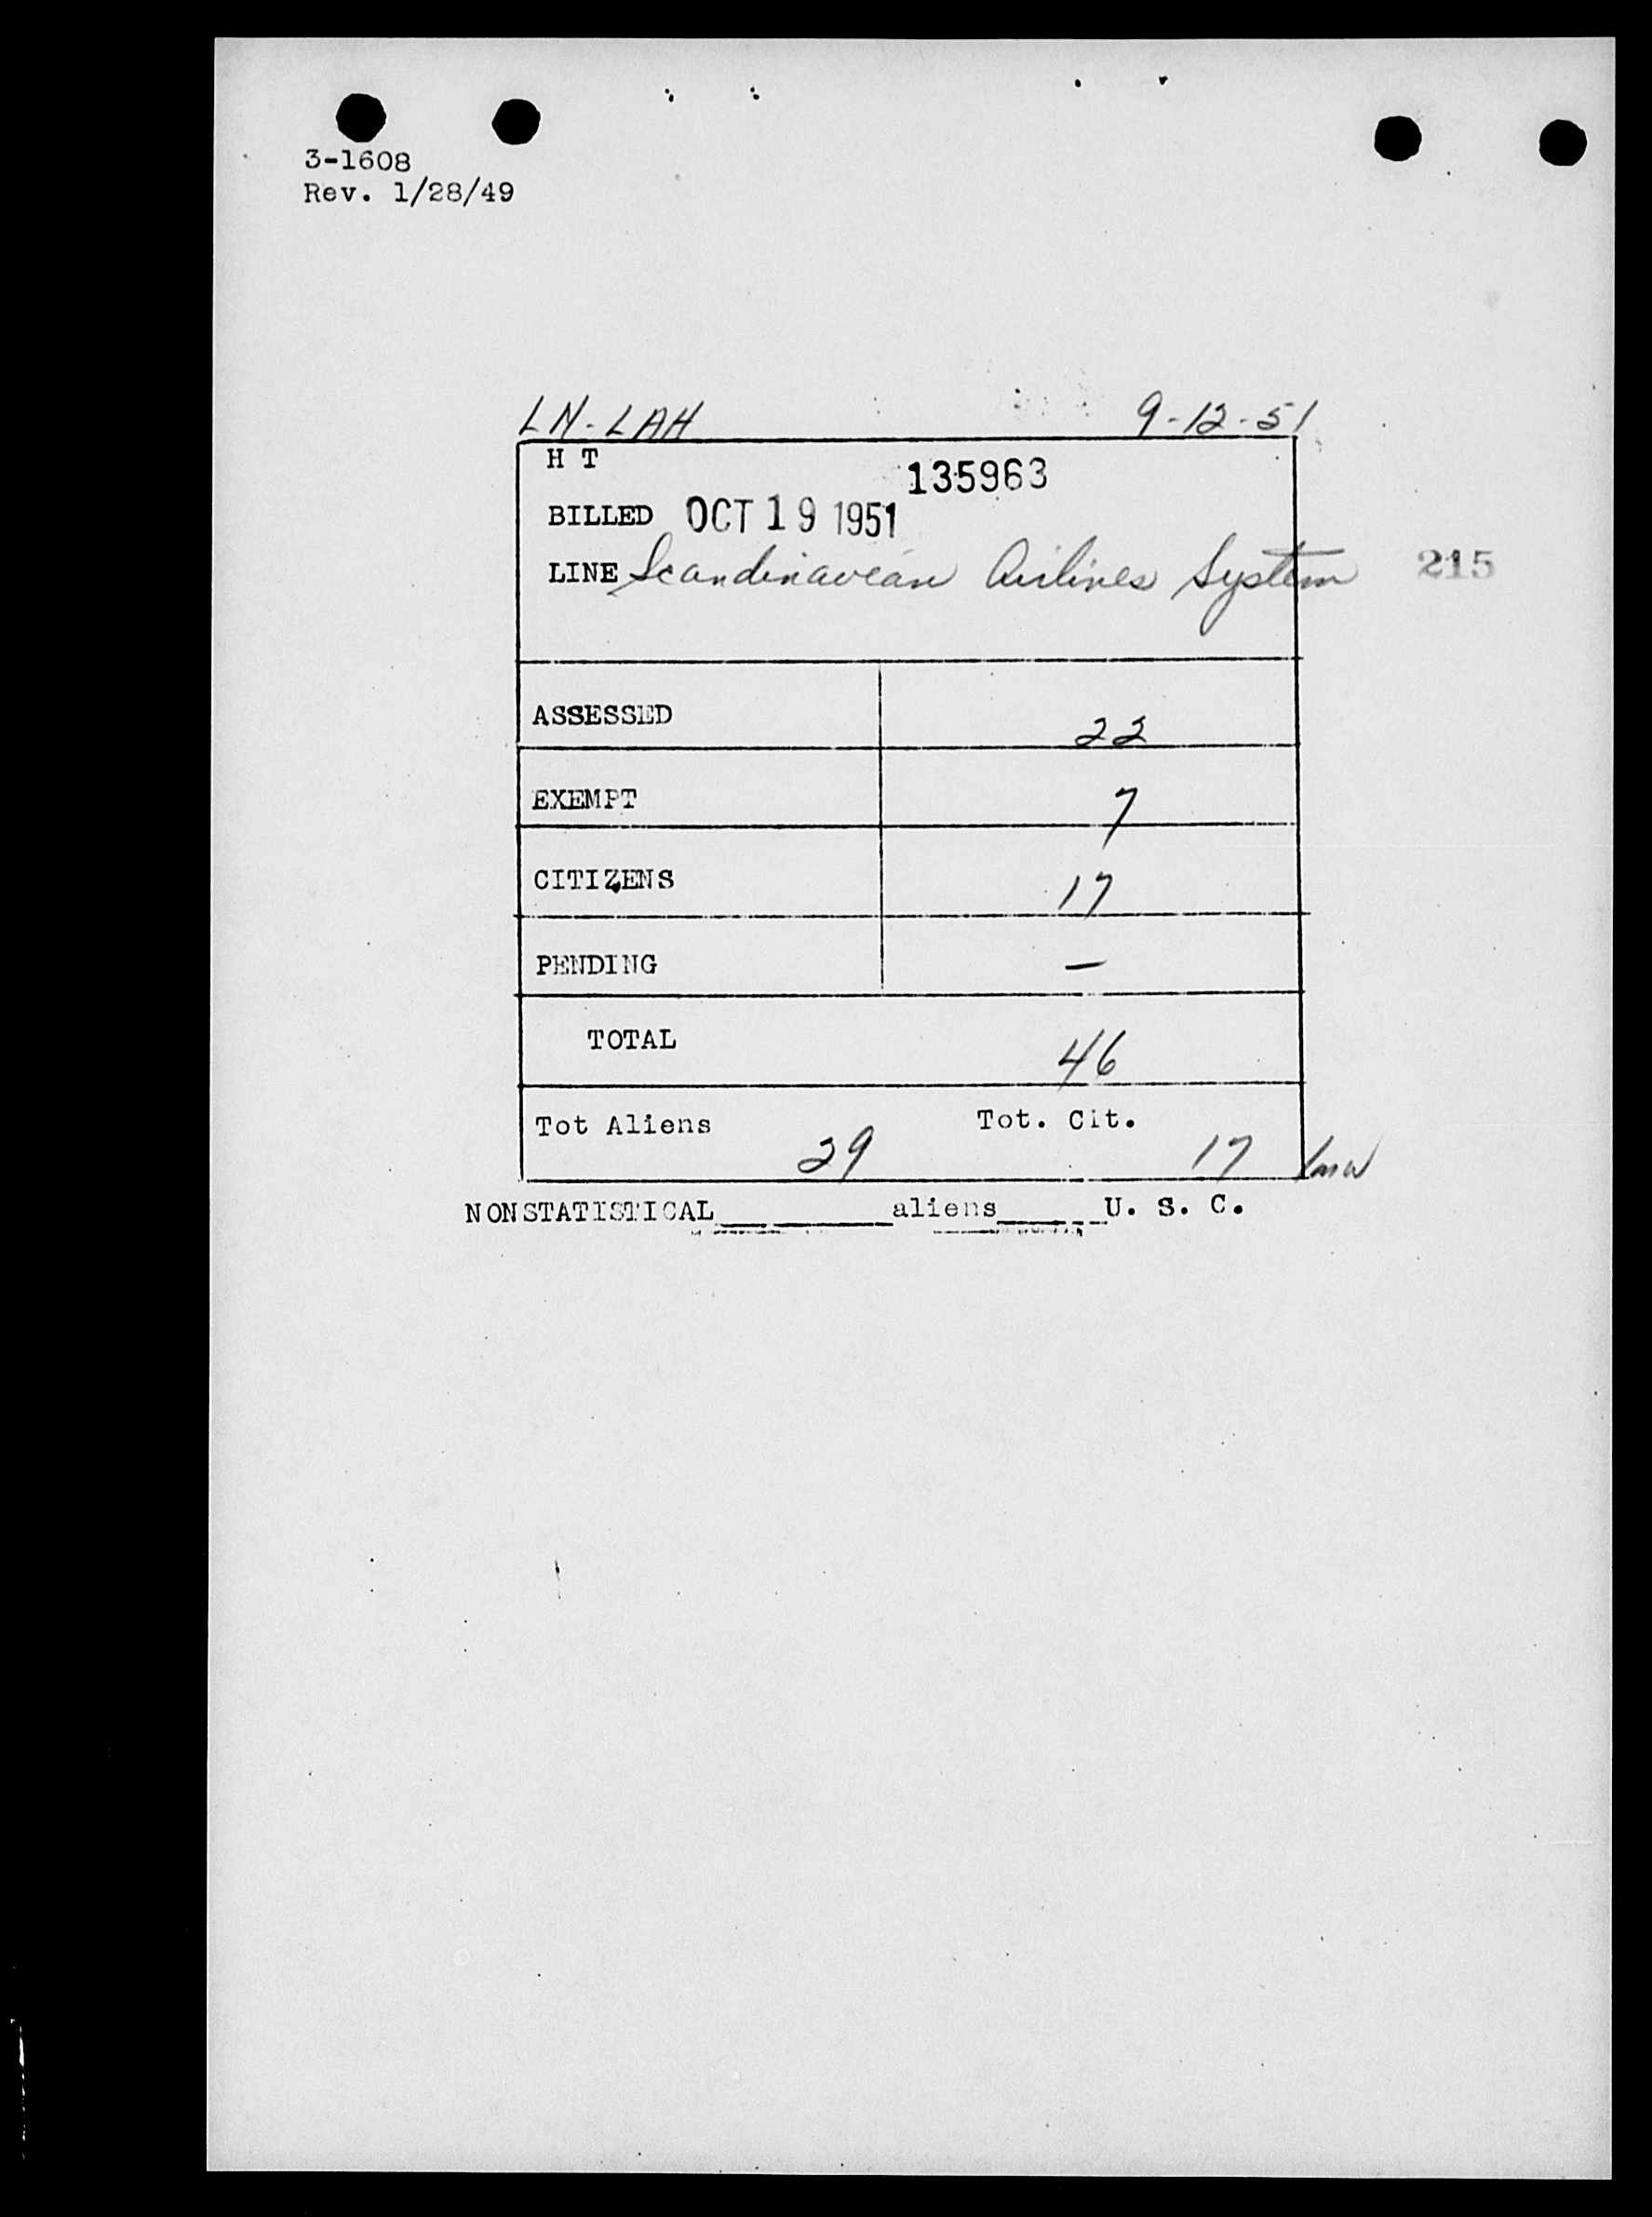 3-1608
Rev. 1/28/49
LN-LAH 9-12-51
H T
135963
BILLED OCT 19 1951
LINE Scandinavian Airlines System 215
ASSESSED 22
EXEMPT 7
CITIZENS 17
PENDING —
TOTAL 46
Tot Aliens 29 Tot. Cit. 17
NONSTATISTICAL__________aliens______U. S. C.